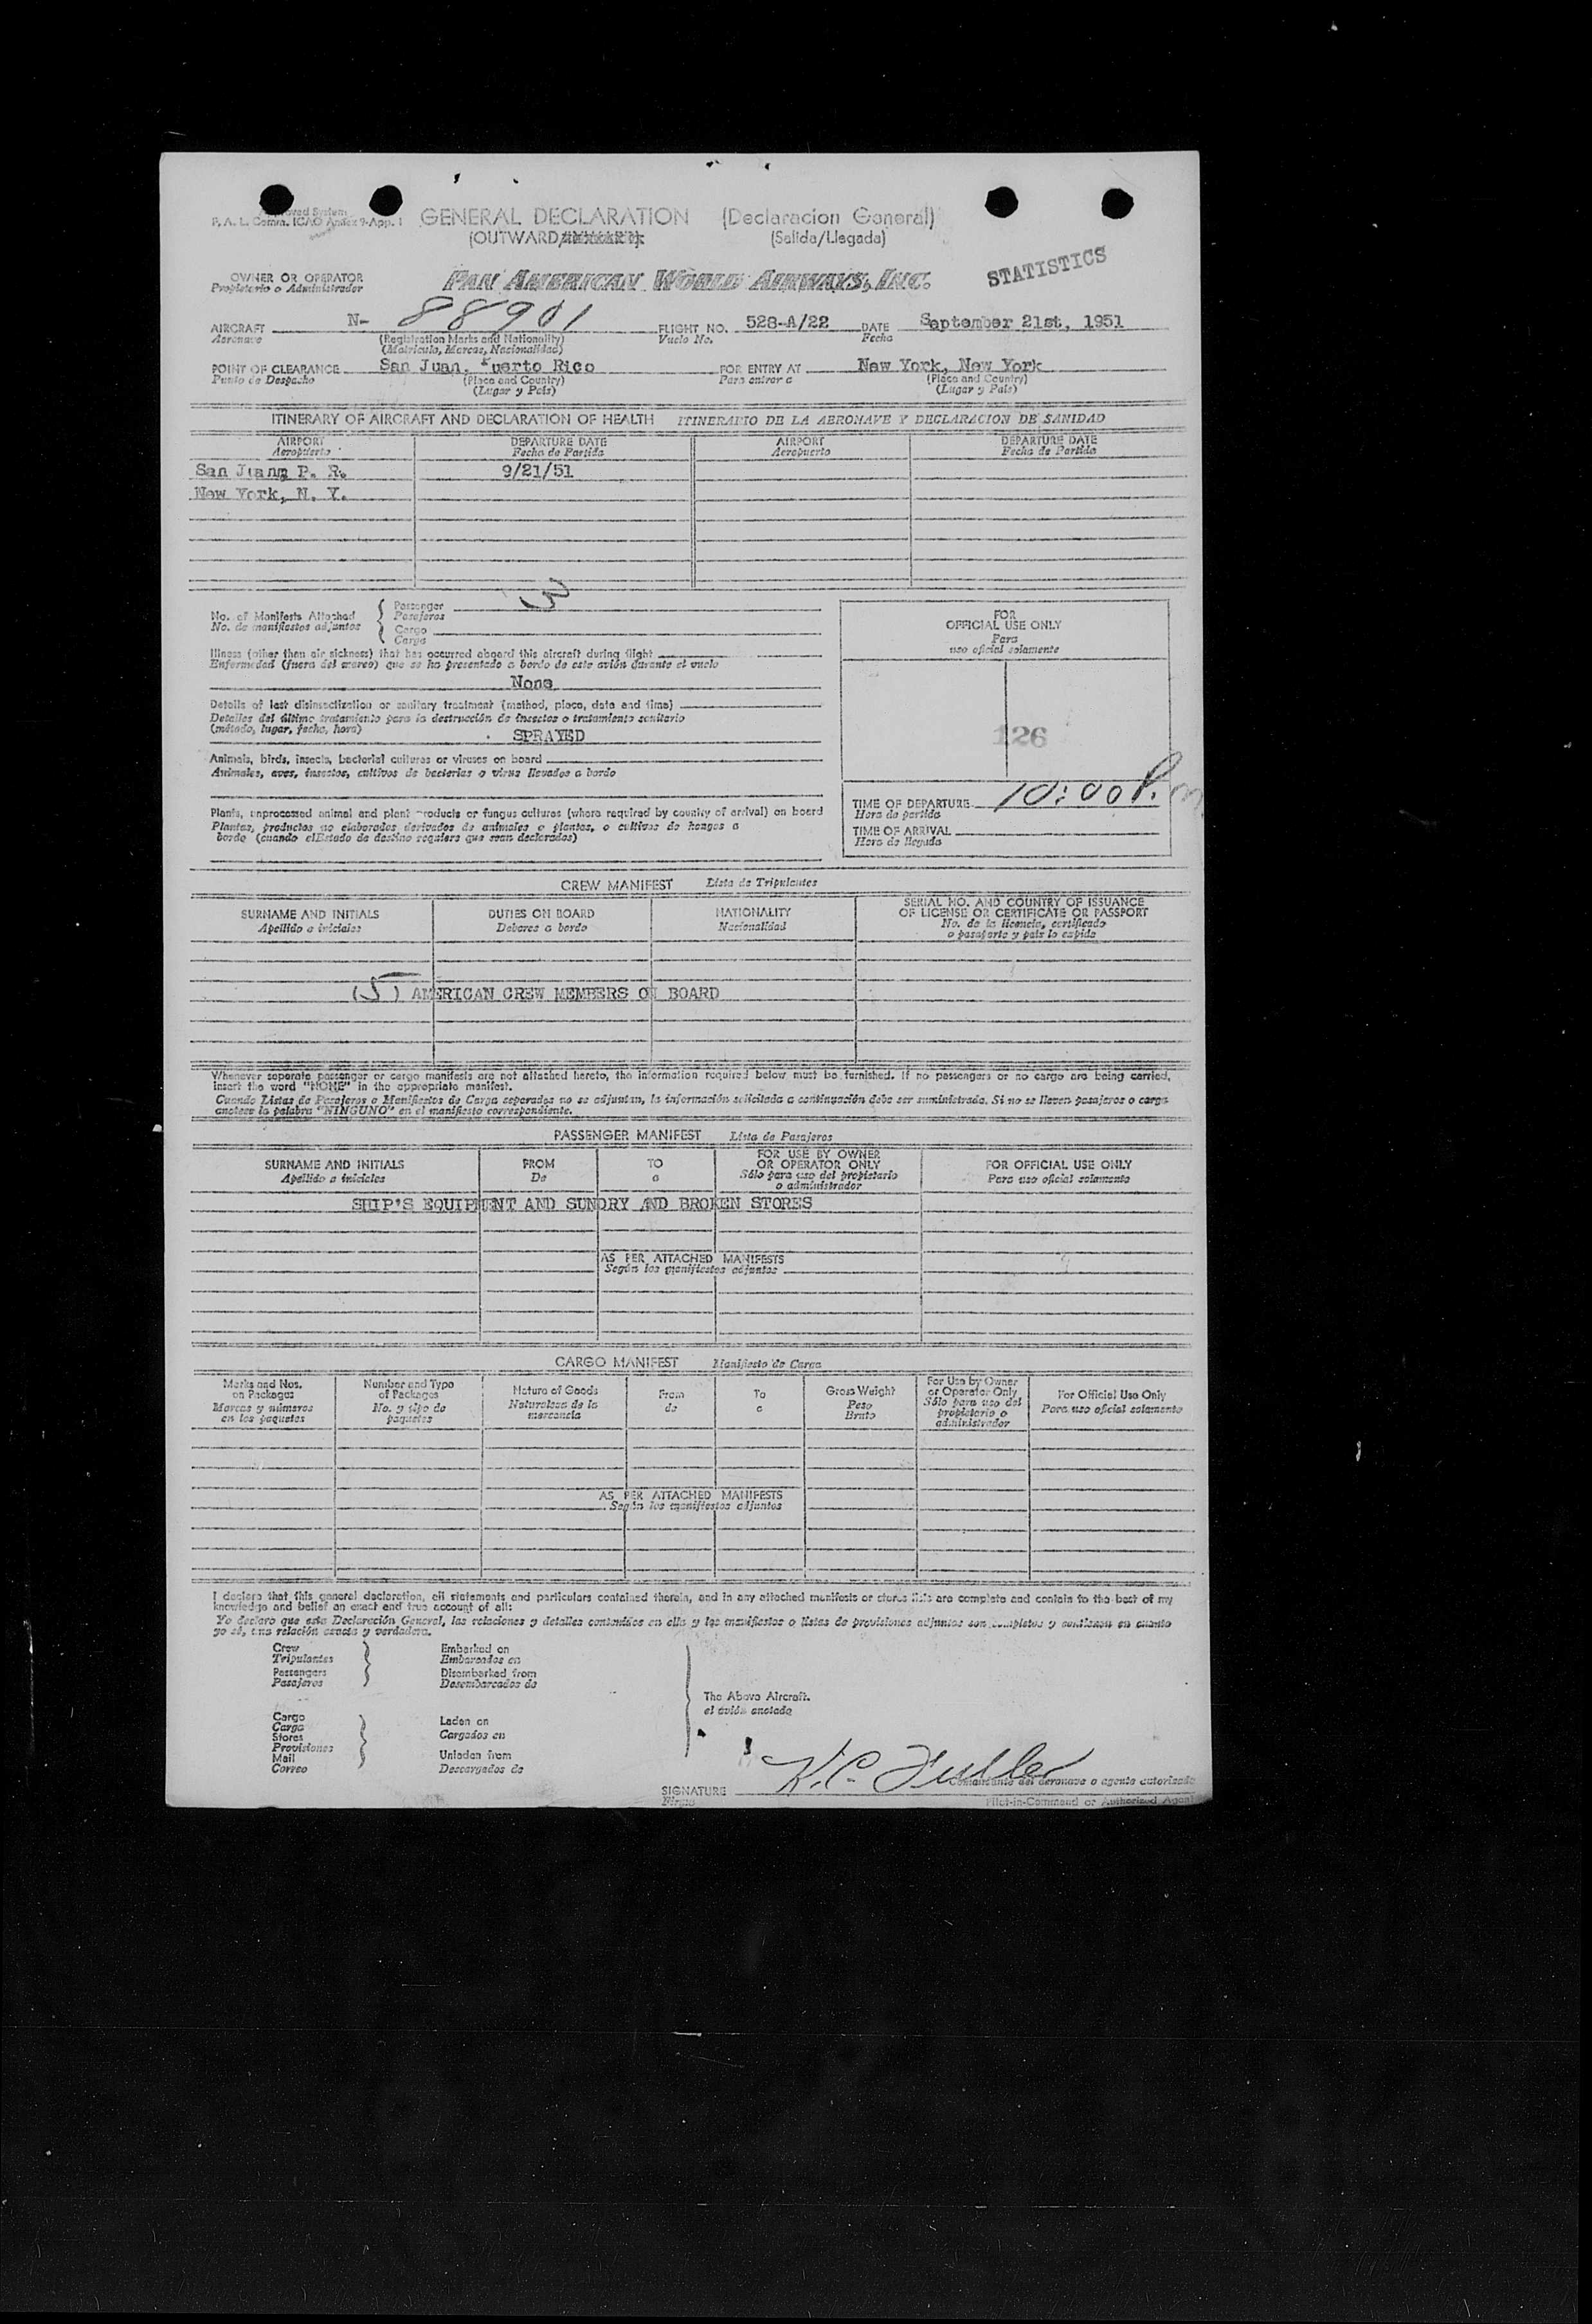 Approved System
F. A. L. Comm. ICAO Annex 9-App. 1
GENERAL DECLARATION (Declaracion General)
(OUTWARD/ (Salida/Llegada)
STATISTICS
OWNER OR OPERATOR PAN AMERICAN WORLD AIRWAYS, INC.
Propietario o Administrador
AIRCRAFT N- 88901 FLIGHT NO. 528-A/22 DATE September 21st, 1951
Aeronave (Registration Marks and Nationality) Vuelo No. Fecha
(Matricula, Marcas, Nacionalidad)
POINT OF CLEARANCE San Juan, Puerto Rico FOR ENTRY AT New York, New York
Punto de Despacho (Place and Country) Para entrar a (Place and Country)
(Lugar y Pais) (Lugar y Pais)
ITINERARY OF AIRCRAFT AND DECLARATION OF HEALTH ITINERARIO DE LA AERONAVE Y DECLARACION DE SANIDAD
AIRPORT DEPARTURE DATE AIRPORT DEPARTURE DATE
Aeropuerto Fecha de Partida Aeropuerto Fecha de Partida
San Juan, P. R. 9/21/51
New York, N. Y.
No. of Manifests Attached Passenger 3
No. de manifiestos adjuntos Pasajeros
Cargo
Carga
FOR
OFFICIAL USE ONLY
Para
uso oficial solamente
Illness (other than air sickness) that has occurred aboard this aircraft during flight
Enfermedad (fuera del mareo) que se ha presentado a bordo de este avión durante el vuelo
None
Details of last disinsectization or sanitary treatment (method, place, date and time)
Detalles del último tratamiento para la destrucción de insectos o tratamiento sanitario
(método, lugar, fecha, hora)
SPRAYED
126
Animals, birds, insects, bacterial cultures or viruses on board
Animales, aves, insectos, cultivos de bacterias o virus llevados a bordo
Plants, unprocessed animal and plant products or fungus cultures (where required by country of arrival) on board
Plantas, productos no elaborados derivados de animales o plantas, o cultivos de hongos a
bordo (cuando el Estado de destino requiera que sean declarados)
TIME OF DEPARTURE 10:00 P.m
Hora de partida
TIME OF ARRIVAL
Hora de llegada
CREW MANIFEST Lista de Tripulantes
SURNAME AND INITIALS DUTIES ON BOARD NATIONALITY SERIAL NO. AND COUNTRY OF ISSUANCE
OF LICENSE OR CERTIFICATE OR PASSPORT
Apellido e iniciales Deberes a bordo Nacionalidad No. de la licencia, certificado
o pasaporte y pais lo expide
(5) AMERICAN CREW MEMBERS ON BOARD
Whenever separate passenger or cargo manifests are not attached hereto, the information required below must be furnished. If no passengers or no cargo are being carried,
insert the word "NONE" in the appropriate manifest.
Cuando Listas de Pasajeros o Manifiestos de Carga separados no se adjuntan, la información solicitada a continuación debe ser suministrada. Si no se llevan pasajeros o carga
anotese la palabra "NINGUNO" en el manifiesto correspondiente.
PASSENGER MANIFEST Lista de Pasajeros
SURNAME AND INITIALS FROM TO FOR USE BY OWNER
OR OPERATOR ONLY FOR OFFICIAL USE ONLY
Apellido e iniciales De a Sólo para uso del propietario
o administrador Para uso oficial solamente
SHIP'S EQUIPMENT AND SUNDRY AND BROKEN STORES
AS PER ATTACHED MANIFESTS
Según los manifiestos adjuntos
CARGO MANIFEST Manifiesto de Carga
Marks and Nos.
on Packages
Marcas y números
en los paquetes
Number and Type
of Packages
No. y tipo de
paquetes
Nature of Goods
Naturaleza de la
mercancia
From
de
To
a
Gross Weight
Peso
Bruto
For Use by Owner
or Operator Only
Sólo para uso del
propietario o
administrador
For Official Use Only
Para uso oficial solamente
AS PER ATTACHED MANIFESTS
Según los manifiestos adjuntos
I declare that this general declaration, all statements and particulars contained therein, and in any attached manifests or stores lists are complete and contain to the best of my
knowledge and belief an exact and true account of all:
Yo declaro que esta Declaración General, las relaciones y detalles contenidos en ella y los manifiestos o listas de provisiones adjuntas son completos y contienen en cuanto
yo sé, una relación exacta y verdadera.
Crew Embarked on
Tripulantes Embarcados en
Passengers Disembarked from
Pasajeros Desembarcados de
The Above Aircraft.
el avión anotado
Cargo Laden on
Carga Cargados en
Stores
Provisiones
Mail Unladen from
Correo Descargados de
SIGNATURE K.C. Fuller
Firma
Comandante del aeronave o agente autorizado
Pilot-in-Command or Authorized Agent